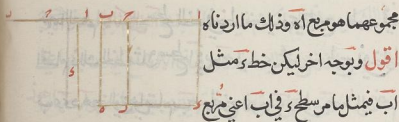 مجموعهما هو مربع اه وذلك ما اردناه
اقول وبوجه اخر ليكن خط ء مثل
اب فيمثل ما مر سطح ء في اب اعني مربع